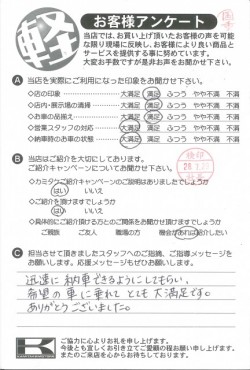 軽
お客様アンケート
当店では、お買い上げ頂いたお客様の声を可能
な限り現場に反映し、お客様により良い商品と
サービスを提供する事に努めています。
大変お手数ですが是非お声をお聞かせ下さい。
A 当店を実際にご利用になった印象をお聞かせ下さい。
◇店の印象 大満足 満足 ふつう やや不満 不満
◇店内・展示場の清掃 大満足 満足 ふつう やや不満 不満
◇お車の品揃え 大満足 満足 ふつう やや不満 不満
◇営業スタッフの対応 大満足 満足 ふつう やや不満 不満
◇納車時のお車の状態 大満足 満足 ふつう やや不満 不満
B 当店はご紹介を大切にしております。
ご紹介キャンペーンについてお聞かせ下さい。
◇カミタケご紹介キャンペーンのご説明はありましたでしょうか
はい いいえ
◇ご紹介キャンペーンにご協力を頂けますでしょうか
はい いいえ
◇具体的にご紹介頂ける方とのご関係をお聞かせ頂けますでしょうか
ご親族 ご友人 職場の方 機会があれば紹介したい
C 担当させて頂きましたスタッフへのご指摘、ご指導メッセージを
お願いします。応援メッセージもぜひお願いします。
迅速に納車できるようにしてもらい、
希望の車に乗れて とても 大満足です。
ありがとうございました。
K
ご協力に心よりお礼を申し上げます。
今後とも宜しくお引き立てご愛顧の程お願い申し上げます。
またのご来店を心からお待ちしております。